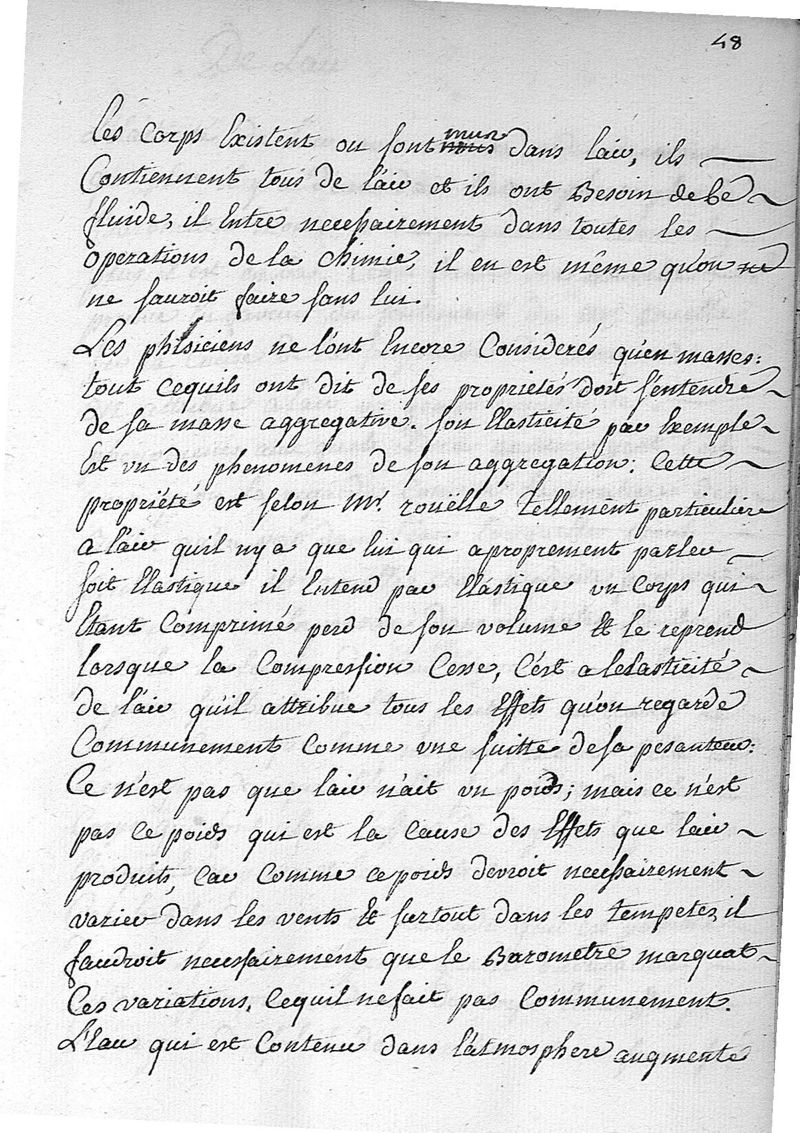 48
les Corps Existent ou sont nous mus dans l'air, ils
Contiennent tous de l'air et ils ont Besoin de ce
fluide, il Entre necessairement dans toutes les
operations de la chimie, il en est même qu'on ne
ne sauroit faire sans lui.
Les phisiciens ne l'ont Encore Considerés qu'en masses:
tout cequils ont dit de ses proprietés doit s'entendre
de sa masse aggregative. son Elasticité par Exemple
Est un des phenomenes de son aggregation. Cette
propriété est selon Mr. rouëlle Tellement particuliere
a l'air quil ny a que lui qui a proprement parler
soit Elastique il Entend par Elastique un Corps qui
Etant Comprimé perd de son volume Et le reprend
lorsque la Compression Cesse, C'est a lelasticité
de l'air qu'il attribue tous les Effets qu'on regarde
Communement comme une suitte de sa pesanteur:
Ce n'est pas que lair n'ait un poids; mais ce n'est
pas ce poids qui est la Cause des Effets que lair
produit, car Comme ce poids devroit necessairement
varier dans les vents Et surtout dans les Tempetes, il
faudroit necessairement que le Barometre marquat
Ces variations, Cequil ne fait pas Communement.
L'Eau qui est Contenue dans l'atmosphere augmente